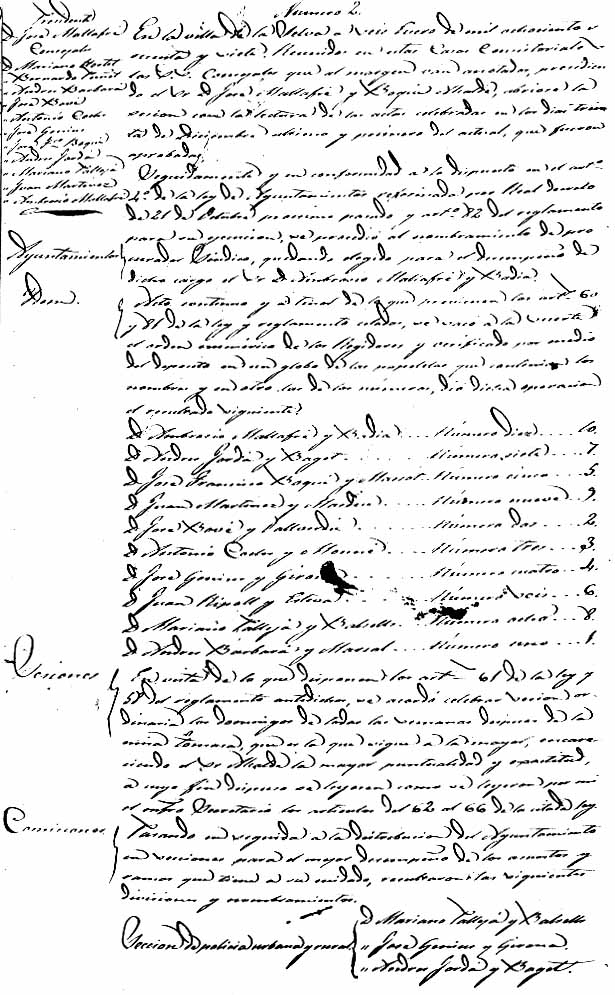 Numero 2.
Presidente
D José Mallafré
Concejales
D Mariano Bertol
" Bernardo
" Andres Barbara
" José Bové
" Antonio Coder
" José Genius
" José F.co Boqué
" Andres Jordá
" Mariano Vallejá
" Juan Martinez
" Ambrosio Mallafré
En la villa de la Selva a seis Enero de mil ochocientos s
esenta y siete: Reunidos en estas Casas Consistoriales
los S.S. Concejales que al margen van anotados, presidien
do el Sr D José Mallafré y Boqué Alcalde, abriose la
sesion con la lectura de las actas celebradas en los dias trein
ta de Diciembre ultimo y primero del actual, que fueron
aprobadas.
Seguidamente y en conformidad a lo dispuesto en el art.º
4º de la ley de Ayuntamientos reformada por Real decreto
de 21 de Octubre procsimo pasado y art.º 82 del reglamento
Ayuntamiento
para su ejecucion, se procedió al nombramiento de pro
curador Sindico, quedando elegido para el desempeño de
dicho cargo el Sr D Ambrosio Mallafré y Badia.
Idem.
Acto continuo y a tenor de lo que previenen los art.s 60
y 81 de la ley y reglamento citados, se sacó a la suerte
el orden numérico de los Regidores y verificado por medio
del deposito en un globo de las papeletas que contenian los
nombres y en otro las de los números, dió dicha operacion
el resultado siguiente:
D Ambrosio Mallafré y Badia .... Número diez .... 10.
D Andres Jordá y Baget .... Número siete .... 7.
D José Francisco Boqué y Massot Número cinco .... 5.
D Juan Martinez y .... Número nueve .... 9.
D José Bové y .... Número dos .... 2.
D Antonio Coder y .... Número tres .... 3.
D José Genius y Girona .... Número cuatro .... 4.
D Juan Ripoll y .... Número seis .... 6.
D Mariano Vallejá y .... Número ocho .... 8.
D Andres Barbará y Massot .... Número uno .... 1.
Sesiones
En vista de lo que disponen los art.s 61 de la ley y
58 del reglamento antedichos, se acordó celebrar sesion or
dinaria los domingos de todas las semanas despues de la
misa que es la que sigue a la mayor, encare
ciendo el Sr Alcalde la mayor puntualidad y exactitud,
a cuyo fin dispuso se leyeran como se leyeron por mi
el infro Secretario los articulos del 62 al 66 de la citada ley.
Comisiones
Pasando en seguida a la distribucion del Ayuntamiento
en secciones para el mejor desempeño de los asuntos y
ramos que tiene a su cuidado, resultaron las siguientes
divisiones y nombramientos.
Seccion de policia urbana y rural
D Mariano Vallejá y
" José Genius y Girona.
" Andres Jordá y Baget.